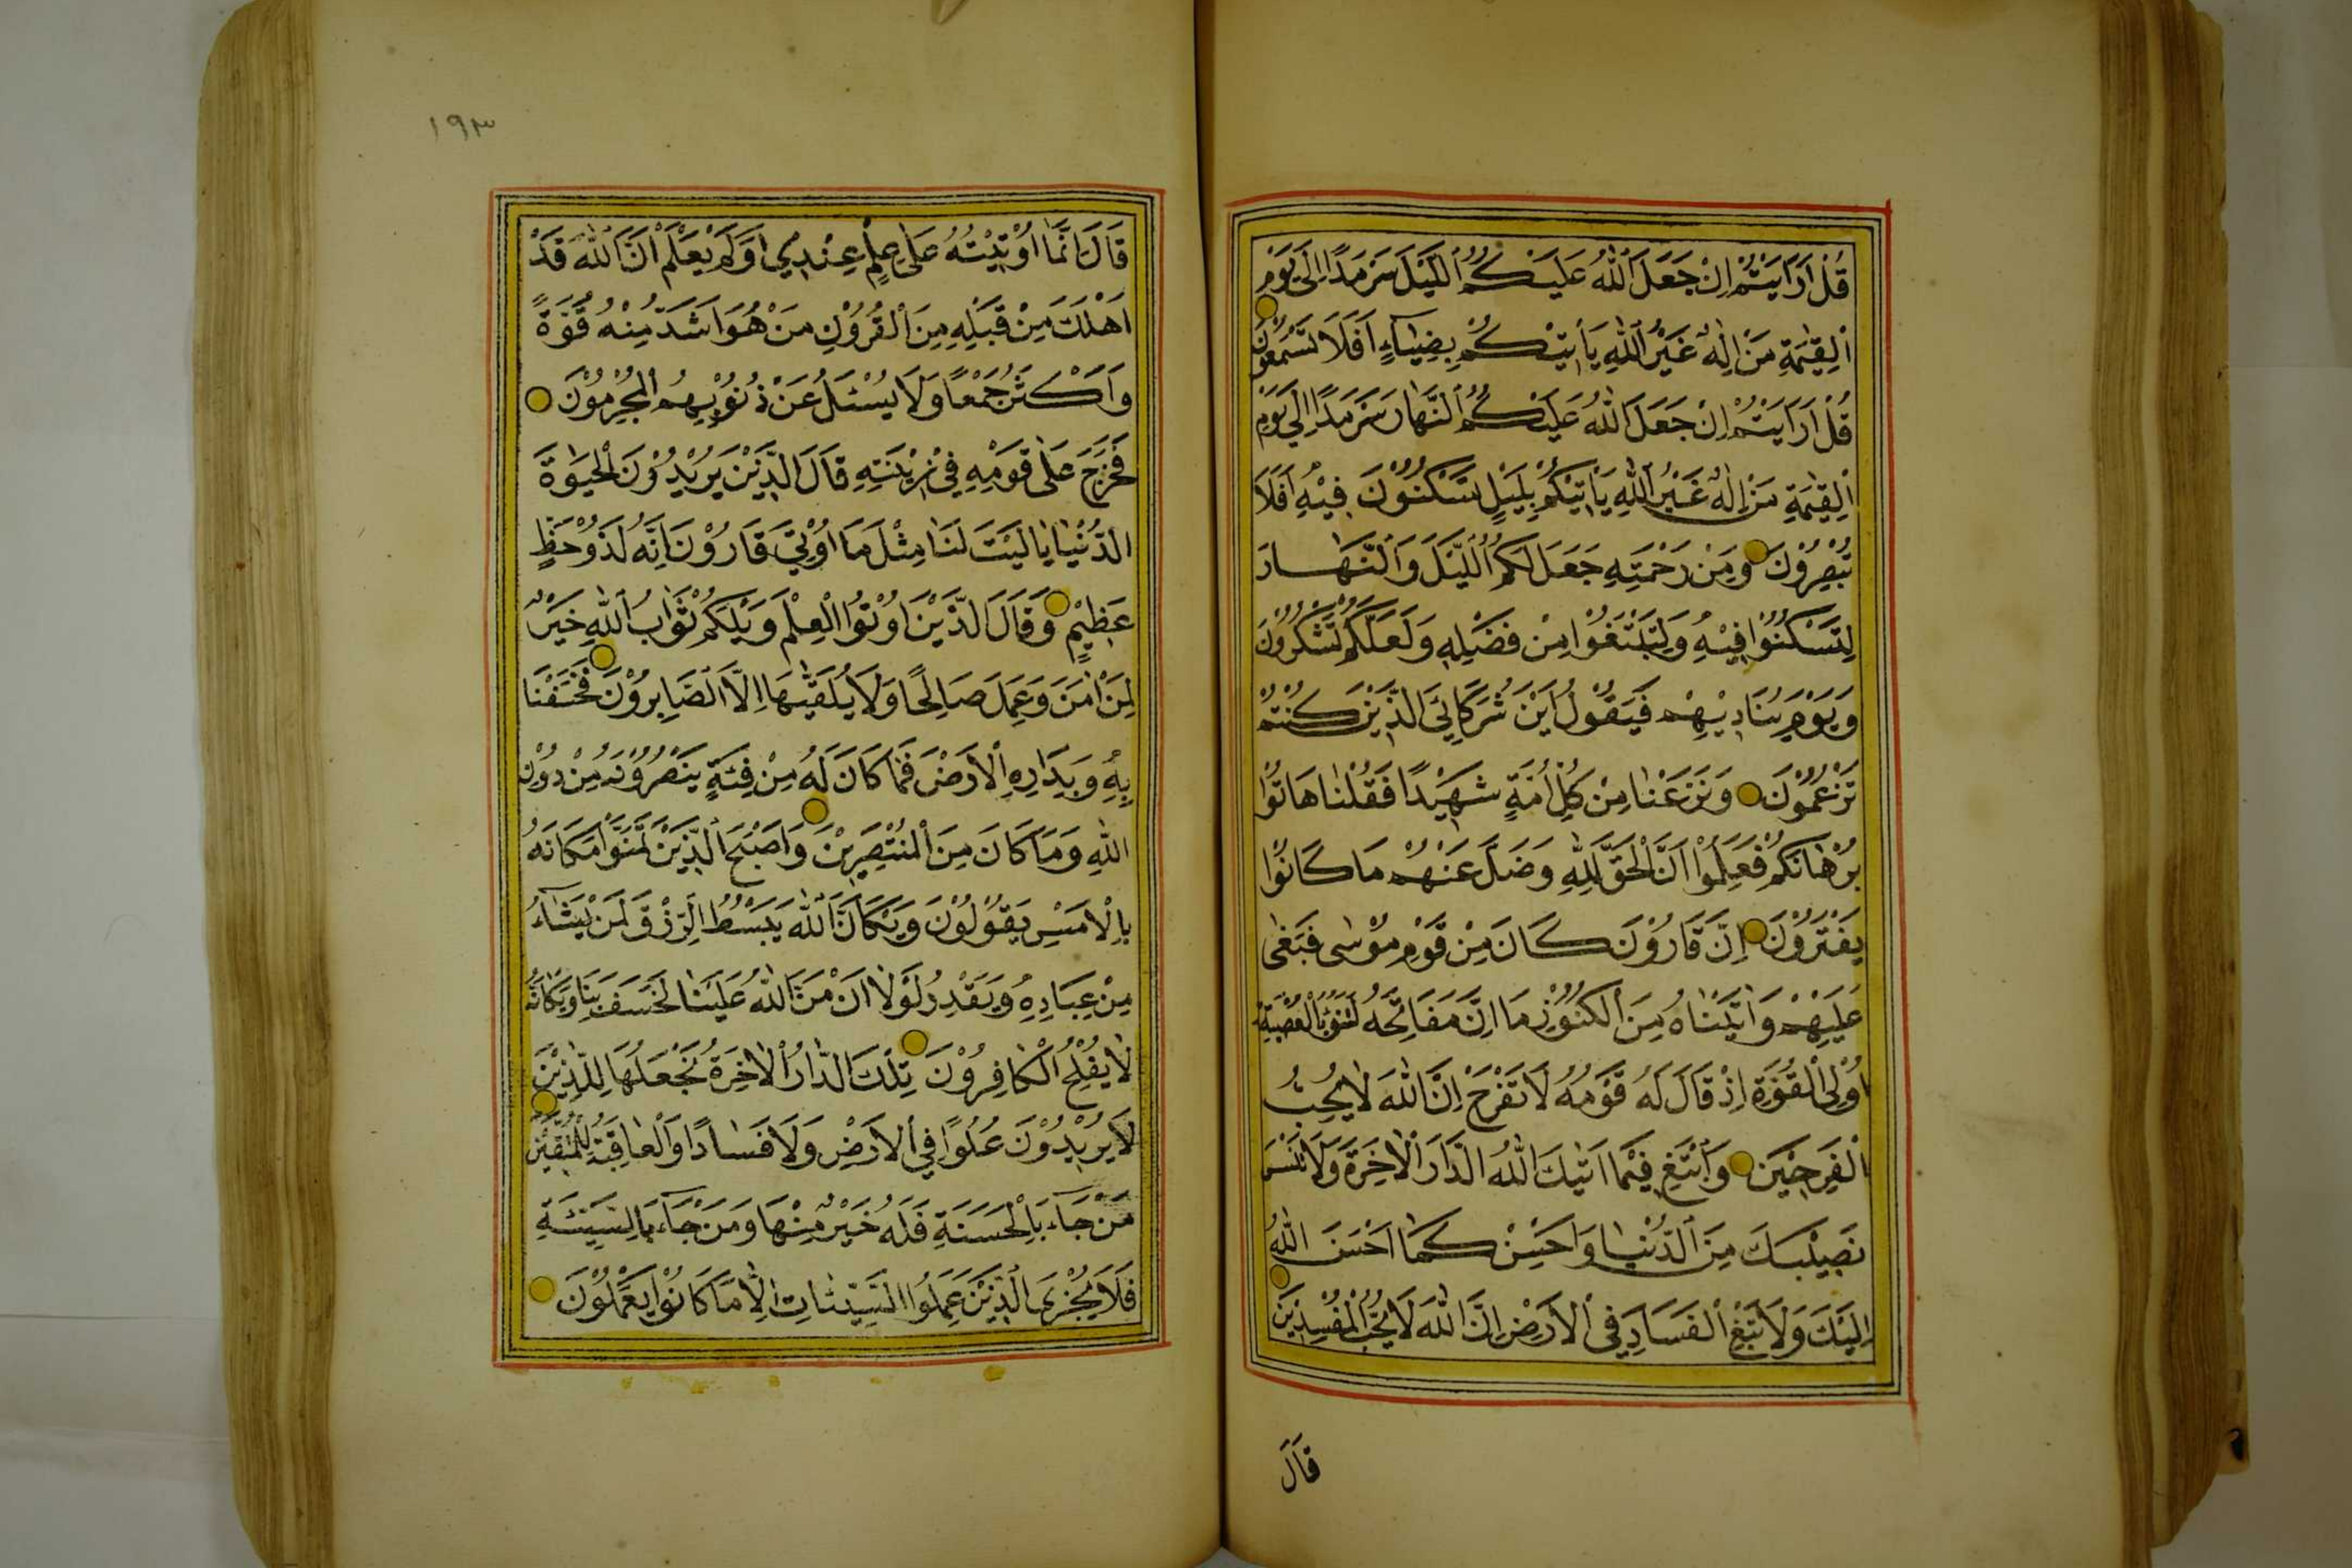 قُلْ اَرَاَيْتُمْ اِنْ جَعَلَ اللّٰهُ عَلَيْكُمُ الَّيْلَ سَرْمَدًا اِلٰى يَوْمِ
الْقِيٰمَةِ مَنْ اِلٰهٌ غَيْرُ اللّٰهِ يَأْتِيْكُمْ بِضِيَآءٍ اَفَلَا تَسْمَعُوْنَ
قُلْ اَرَاَيْتُمْ اِنْ جَعَلَ اللّٰهُ عَلَيْكُمُ النَّهَارَ سَرْمَدًا اِلٰي يَوْمِ
الْقِيٰمَةِ مَنْ اِلٰهٌ غَيْرُ اللّٰهِ يَأْتِيْكُمْ بِلَيْلٍ تَسْكُنُوْنَ فِيْهِ اَفَلَا
تُبْصِرُوْنَ وَمِنْ رَحْمَتِهِ جَعَلَ لَكُمُ الَّيْلَ وَالنَّهَارَ
لِتَسْكُنُوْا فِيْهِ وَلِتَبْتَغُوْا مِنْ فَضْلِهِ وَلَعَلَّكُمْ تَشْكُرُوْنَ
وَيَوْمَ يُنَادِيْهِمْ فَيَقُوْلُ اَيْنَ شُرَكَائِيَ الَّذِيْنَ كُنْتُمْ
تَزْعُمُوْنَ وَنَزَعْنَا مِنْ كُلِّ اُمَّةٍ شَهِيْدًا فَقُلْنَا هَاتُوْا
بُرْهَانَكُمْ فَعَلِمُوْا اَنَّ الْحَقَّ لِلّٰهِ وَضَلَّ عَنْهُمْ مَا كَانُوْا
يَفْتَرُوْنَ اِنَّ قَارُوْنَ كَانَ مِنْ قَوْمِ مُوْسٰى فَبَغٰى
عَلَيْهِمْ وَاٰتَيْنَاهُ مِنَ الْكُنُوْزِ مَا اِنَّ مَفَاتِحَهُ لَتَنُوْٓأُ بِالْعُصْبَةِ
اُولِي الْقُوَّةِ اِذْ قَالَ لَهُ قَوْمُهُ لَا تَفْرَحْ اِنَّ اللّٰهَ لَا يُحِبُّ
الْفَرِحِيْنَ وَابْتَغِ فِيْمَا اٰتٰيكَ اللّٰهُ الدَّارَ الْاٰخِرَةَ وَلَا تَنْسَ
نَصِيْبَكَ مِنَ الدُّنْيَا وَاَحْسِنْ كَمَا اَحْسَنَ اللّٰهُ
اِلَيْكَ وَلَا تَبْغِ الْفَسَادَ فِي الْاَرْضِ اِنَّ اللّٰهَ لَا يُحِبُّ الْمُفْسِدِيْنَ
قَالَ
١٩٣
قَالَ اِنَّمَا اُوْتِيْتُهُ عَلٰى عِلْمٍ عِنْدِيْ اَوَلَمْ يَعْلَمْ اَنَّ اللّٰهَ قَدْ
اَهْلَكَ مِنْ قَبْلِهِ مِنَ الْقُرُوْنِ مَنْ هُوَ اَشَدُّ مِنْهُ قُوَّةً
وَاَكْثَرُ جَمْعًا وَلَا يُسْئَلُ عَنْ ذُنُوْبِهِمُ الْمُجْرِمُوْنَ
فَخَرَجَ عَلٰى قَوْمِهِ فِيْ زِيْنَتِهِ قَالَ الَّذِيْنَ يُرِيْدُوْنَ الْحَيٰوةَ
الدُّنْيَا يَا لَيْتَ لَنَا مِثْلَ مَا اُوْتِيَ قَارُوْنَ اِنَّهُ لَذُوْ حَظٍّ
عَظِيْمٍ وَقَالَ الَّذِيْنَ اُوْتُوا الْعِلْمَ وَيْلَكُمْ ثَوَابُ اللّٰهِ خَيْرٌ
لِمَنْ اٰمَنَ وَعَمِلَ صَالِحًا وَلَا يُلَقّٰيهَا اِلَّا الصَّابِرُوْنَ فَخَسَفْنَا
بِهِ وَبِدَارِهِ الْاَرْضَ فَمَا كَانَ لَهُ مِنْ فِئَةٍ يَنْصُرُوْنَهُ مِنْ دُوْنِ
اللّٰهِ وَمَا كَانَ مِنَ الْمُنْتَصِرِيْنَ وَاَصْبَحَ الَّذِيْنَ تَمَنَّوْا مَكَانَهُ
بِالْاَمْسِ يَقُوْلُوْنَ وَيْكَاَنَّ اللّٰهَ يَبْسُطُ الرِّزْقَ لِمَنْ يَشَآءُ
مِنْ عِبَادِهِ وَيَقْدِرُ لَوْلَا اَنْ مَنَّ اللّٰهُ عَلَيْنَا لَخَسَفَ بِنَا وَيْكَاَنَّهُ
لَا يُفْلِحُ الْكَافِرُوْنَ تِلْكَ الدَّارُ الْاٰخِرَةُ نَجْعَلُهَا لِلَّذِيْنَ
لَا يُرِيْدُوْنَ عُلُوًّا فِي الْاَرْضِ وَلَا فَسَادًا وَالْعَاقِبَةُ لِلْمُتَّقِيْنَ
مَنْ جَآءَ بِالْحَسَنَةِ فَلَهُ خَيْرٌ مِنْهَا وَمَنْ جَآءَ بِالسَّيِّئَةِ
فَلَا يُجْزَى الَّذِيْنَ عَمِلُوا السَّيِّئَاتِ اِلَّا مَا كَانُوْا يَعْمَلُوْنَ